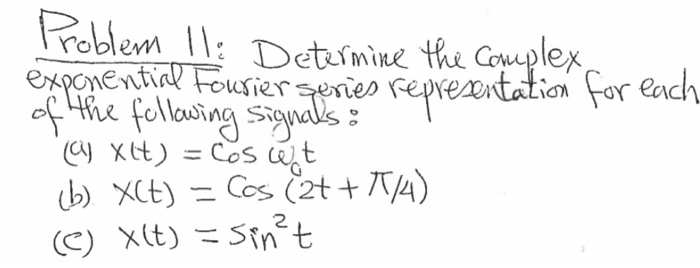 Problem 11: Determine the Complex
exponential Fourier series representation for each
of the following signals:
(a) x(t) = Cos ω₀t
(b) x(t) = Cos (2t + π/4)
(c) x(t) = Sin²t